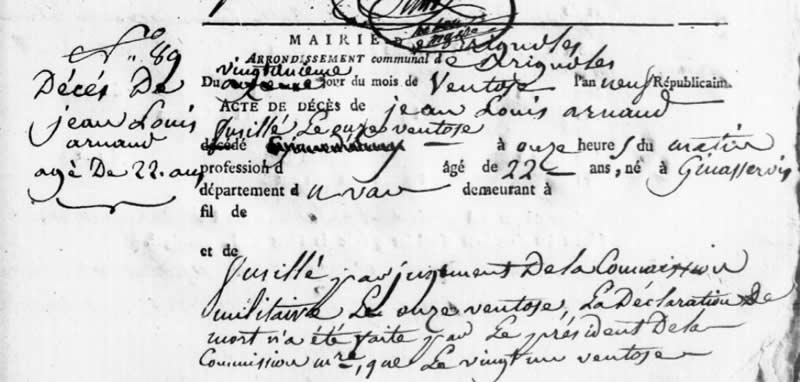 N.° 89
Décés De
jean Louis
arnaud
agé De 22. ans
MAIRIE De Brignoles
ARRONDISSEMENT communal de Brignoles
Du vingtunieme jour du mois de Ventose l'an neuf Républicain.
ACTE DE DÉCÈS de jean Louis arnaud
fusillé Le onze ventose
décédé à onze heures du matin
profession d âgé de 22 ans, né à Ginasservis
département du var demeurant à
fil de
et de
fusillé par jugement De la Commission
militaire Le onze ventose, La Déclaration De
mort n'a été faite par Le président De la
Commission mre, que Le vingt un ventose